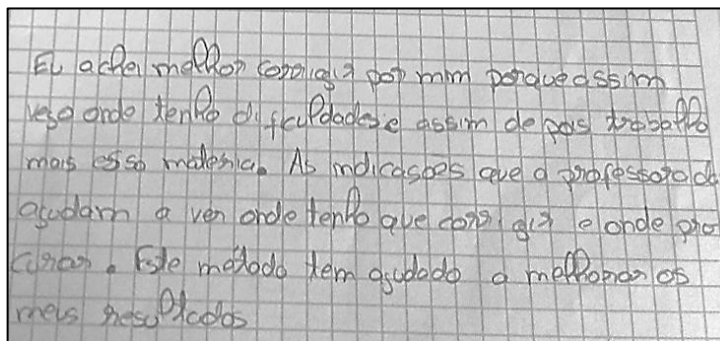 Eu achei melhor corrigir por mim porque assim
vejo onde tenho dificuldades e assim depois trabalho
mais essa matéria. As indicasões que a professora dá
ajudam a ver onde tenho que corrigir e onde pro
curar. Este método tem ajudado a melhorar os
meus resultados